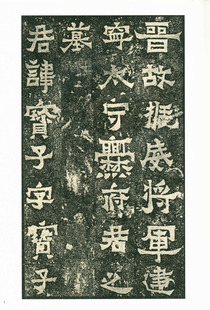 晉故振威將軍建
寧太守爨府君之
墓
君諱寶子字寶子